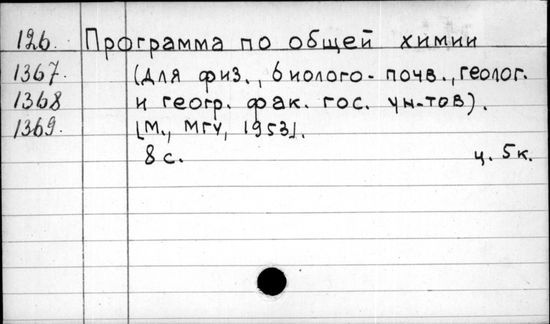 126. Программа по общей химии
1367. (для физ., биолого-почв., геолог.
1368 и геогр. фак. гос. ун-тов).
1369. [М., МГУ, 1953].
8 с. ц. 5 к.